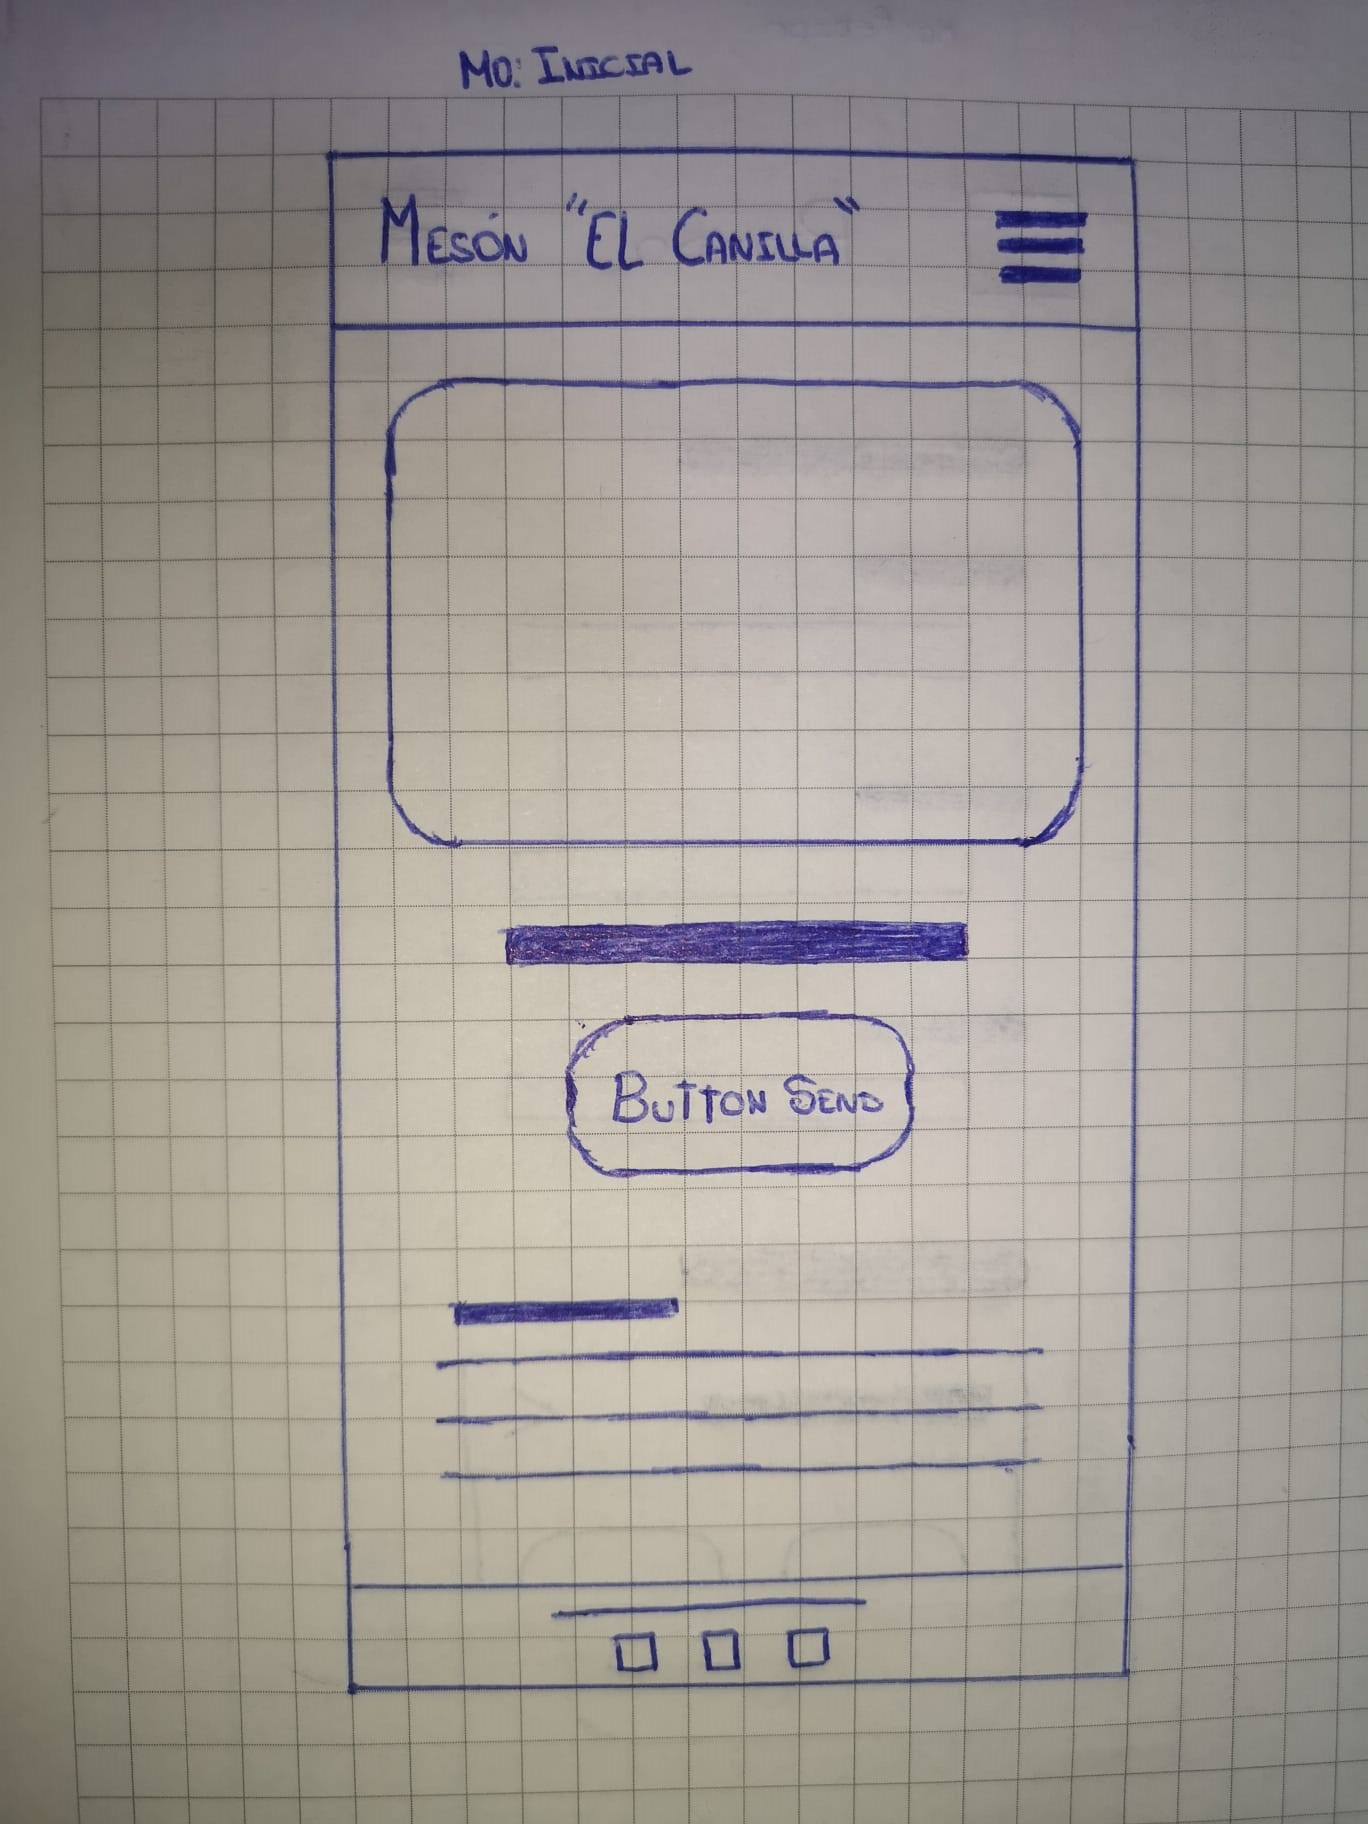 MO: INICIAL
MESÓN "EL CANILLA"
BUTTON SEND